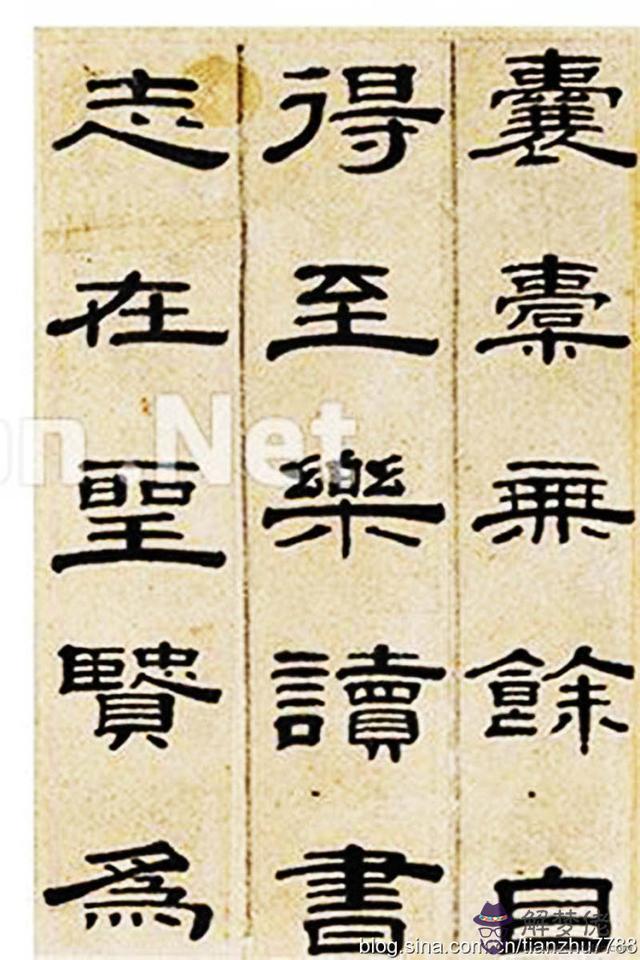 囊橐無餘自
得至樂讀書
志在聖賢為
n.Net
解梦佬
blog.sina.com.cn/tianzhu7788